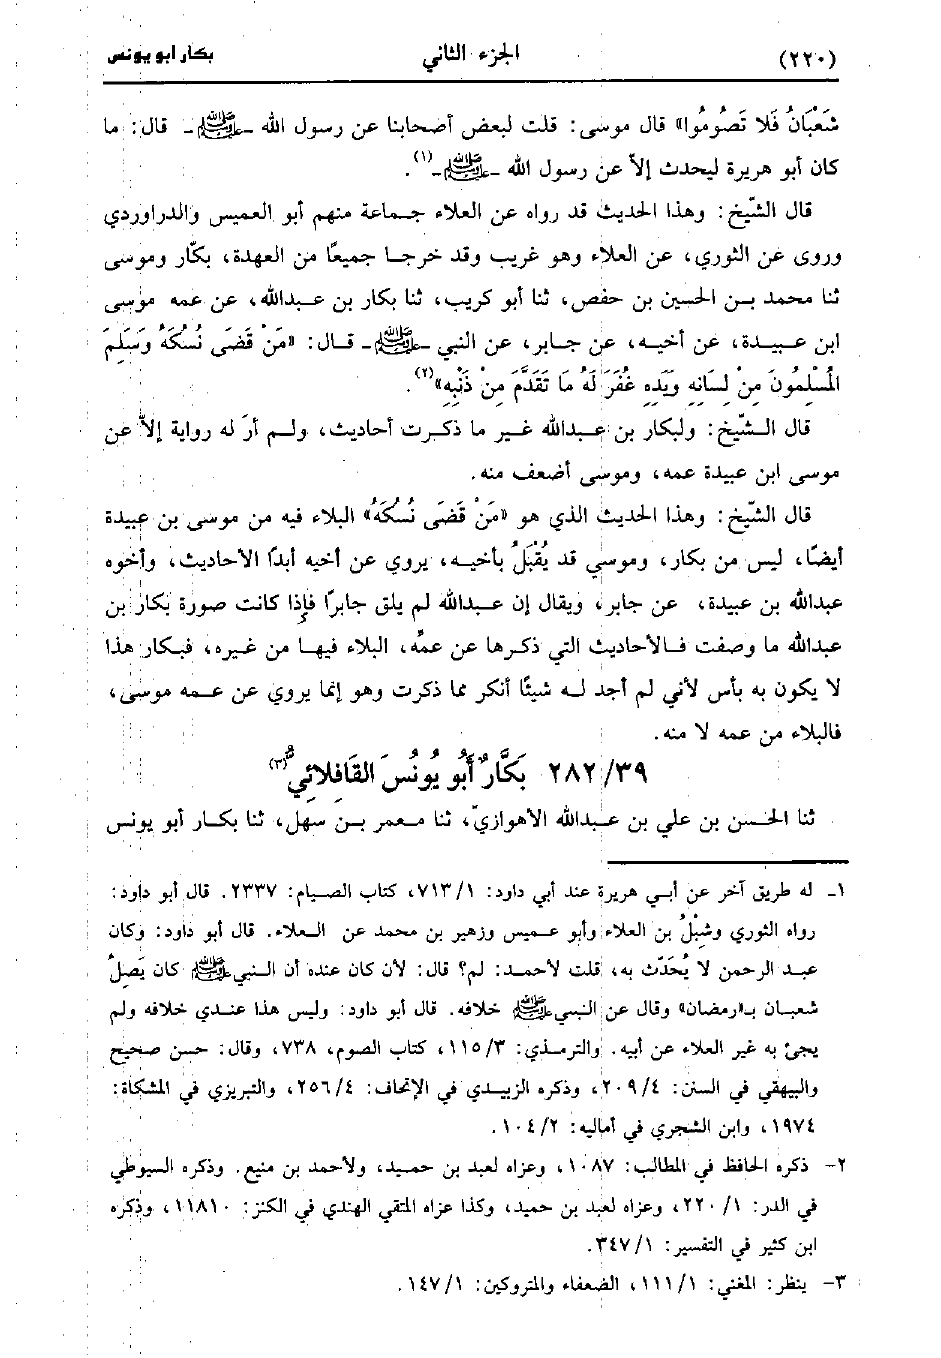 (٢٢٠) الجزء الثاني بكار ابو يونس
شَعْبَانُ فَلَا تَصُومُوا» قال موسى: قلت لبعض أصحابنا عن رسول الله ـ ﷺ ـ قال: ما
كان أبو هريرة ليحدث إلاّ عن رسول الله ـ ﷺ ـ(١).
قال الشّيخ: وهذا الحديث قد رواه عن العلاء جـماعة منهم أبو العميس والدراوردي
وروى عن الثوري، عن العلاء وهو غريب وقد خرجا جميعًا من العهدة، بكّار وموسى
ثنا محمد بن الحسين بن حفص، ثنا أبو كريب، ثنا بكار بن عبدالله، عن عمه موسى
ابن عبيدة، عن أخيه، عن جابر، عن النبي ـ ﷺ ـ قال: «مَنْ قَضَى نُسُكَهُ وَسَلِمَ
المُسْلِمُونَ مِنْ لِسَانِهِ وَيَدِهِ غُفِرَ لَهُ مَا تَقَدَّمَ مِنْ ذَنْبِهِ»(٢).
قال الشّيخ: ولبكار بن عبدالله غير ما ذكرت أحاديث، ولم أرَ له رواية إلاّ عن
موسى ابن عبيدة عمه، وموسى أضعف منه.
قال الشّيخ: وهذا الحديث الذي هو «مَنْ قَضَى نُسُكَهُ» البلاء فيه من موسى بن عبيدة
أيضًا، ليس من بكار، وموسي قد يُقْبَلُ بأخيه، يروي عن أخيه أبدًا الأحاديث، وأخوه
عبدالله بن عبيدة، عن جابر، ويقال إن عبدالله لم يلق جابرًا فإذا كانت صورة بكار بن
عبدالله ما وصفت فالأحاديث التي ذكرها عن عمّه، البلاء فيها من غيره، فبكار هذا
لا يكون به بأس لأني لم أجد له شيئًا أنكر مما ذكرت وهو إنما يروي عن عمه موسى،
فالبلاء من عمه لا منه.
٢٨٢/٣٩ بَكَّارٌ أَبُو يُونُسَ القَافِلائِيُّ(٣)
ثنا الحسن بن علي بن عبدالله الأهوازيّ، ثنا معمر بن سهل، ثنا بكار أبو يونس
١ـ له طريق آخر عن أبي هريرة عند أبي داود: ٧١٣/١، كتاب الصيام: ٢٣٣٧. قال أبو داود:
رواه الثوري وشِبْلُ بن العلاء وأبو عميس وزهير بن محمد عن العلاء. قال أبو داود: وكان
عبد الرحمن لا يُحَدِّث به، قلت لأحمد: لم؟ قال: لأن كان عنده أن النبي ﷺ كان يَصِلُ
شعبان بـ«رمضان» وقال عن النبي ﷺ خلافه. قال أبو داود: وليس هذا عندي خلافه ولم
يجئ به غير العلاء عن أبيه. والترمذي: ١١٥/٣، كتاب الصوم، ٧٣٨، وقال: حسن صحيح
والبيهقي في السنن: ٢٠٩/٤، وذكره الزبيدي في الإتحاف: ٢٥٦/٤، والتبريزي في المشكاة:
١٩٧٤، وابن الشجري في أماليه: ١٠٤/٢.
٢- ذكره الحافظ في المطالب: ١٠٨٧، وعزاه لعبد بن حميد، ولأحمد بن منيع. وذكره السيوطي
في الدر: ٢٢٠/١، وعزاه لعبد بن حميد، وكذا عزاه المتقي الهندي في الكنز: ١١٨١٠، وذكره
ابن كثير في التفسير: ٣٤٧/١.
٣- ينظر: المغني: ١١١/١، الضعفاء والمتروكين: ١٤٧/١.